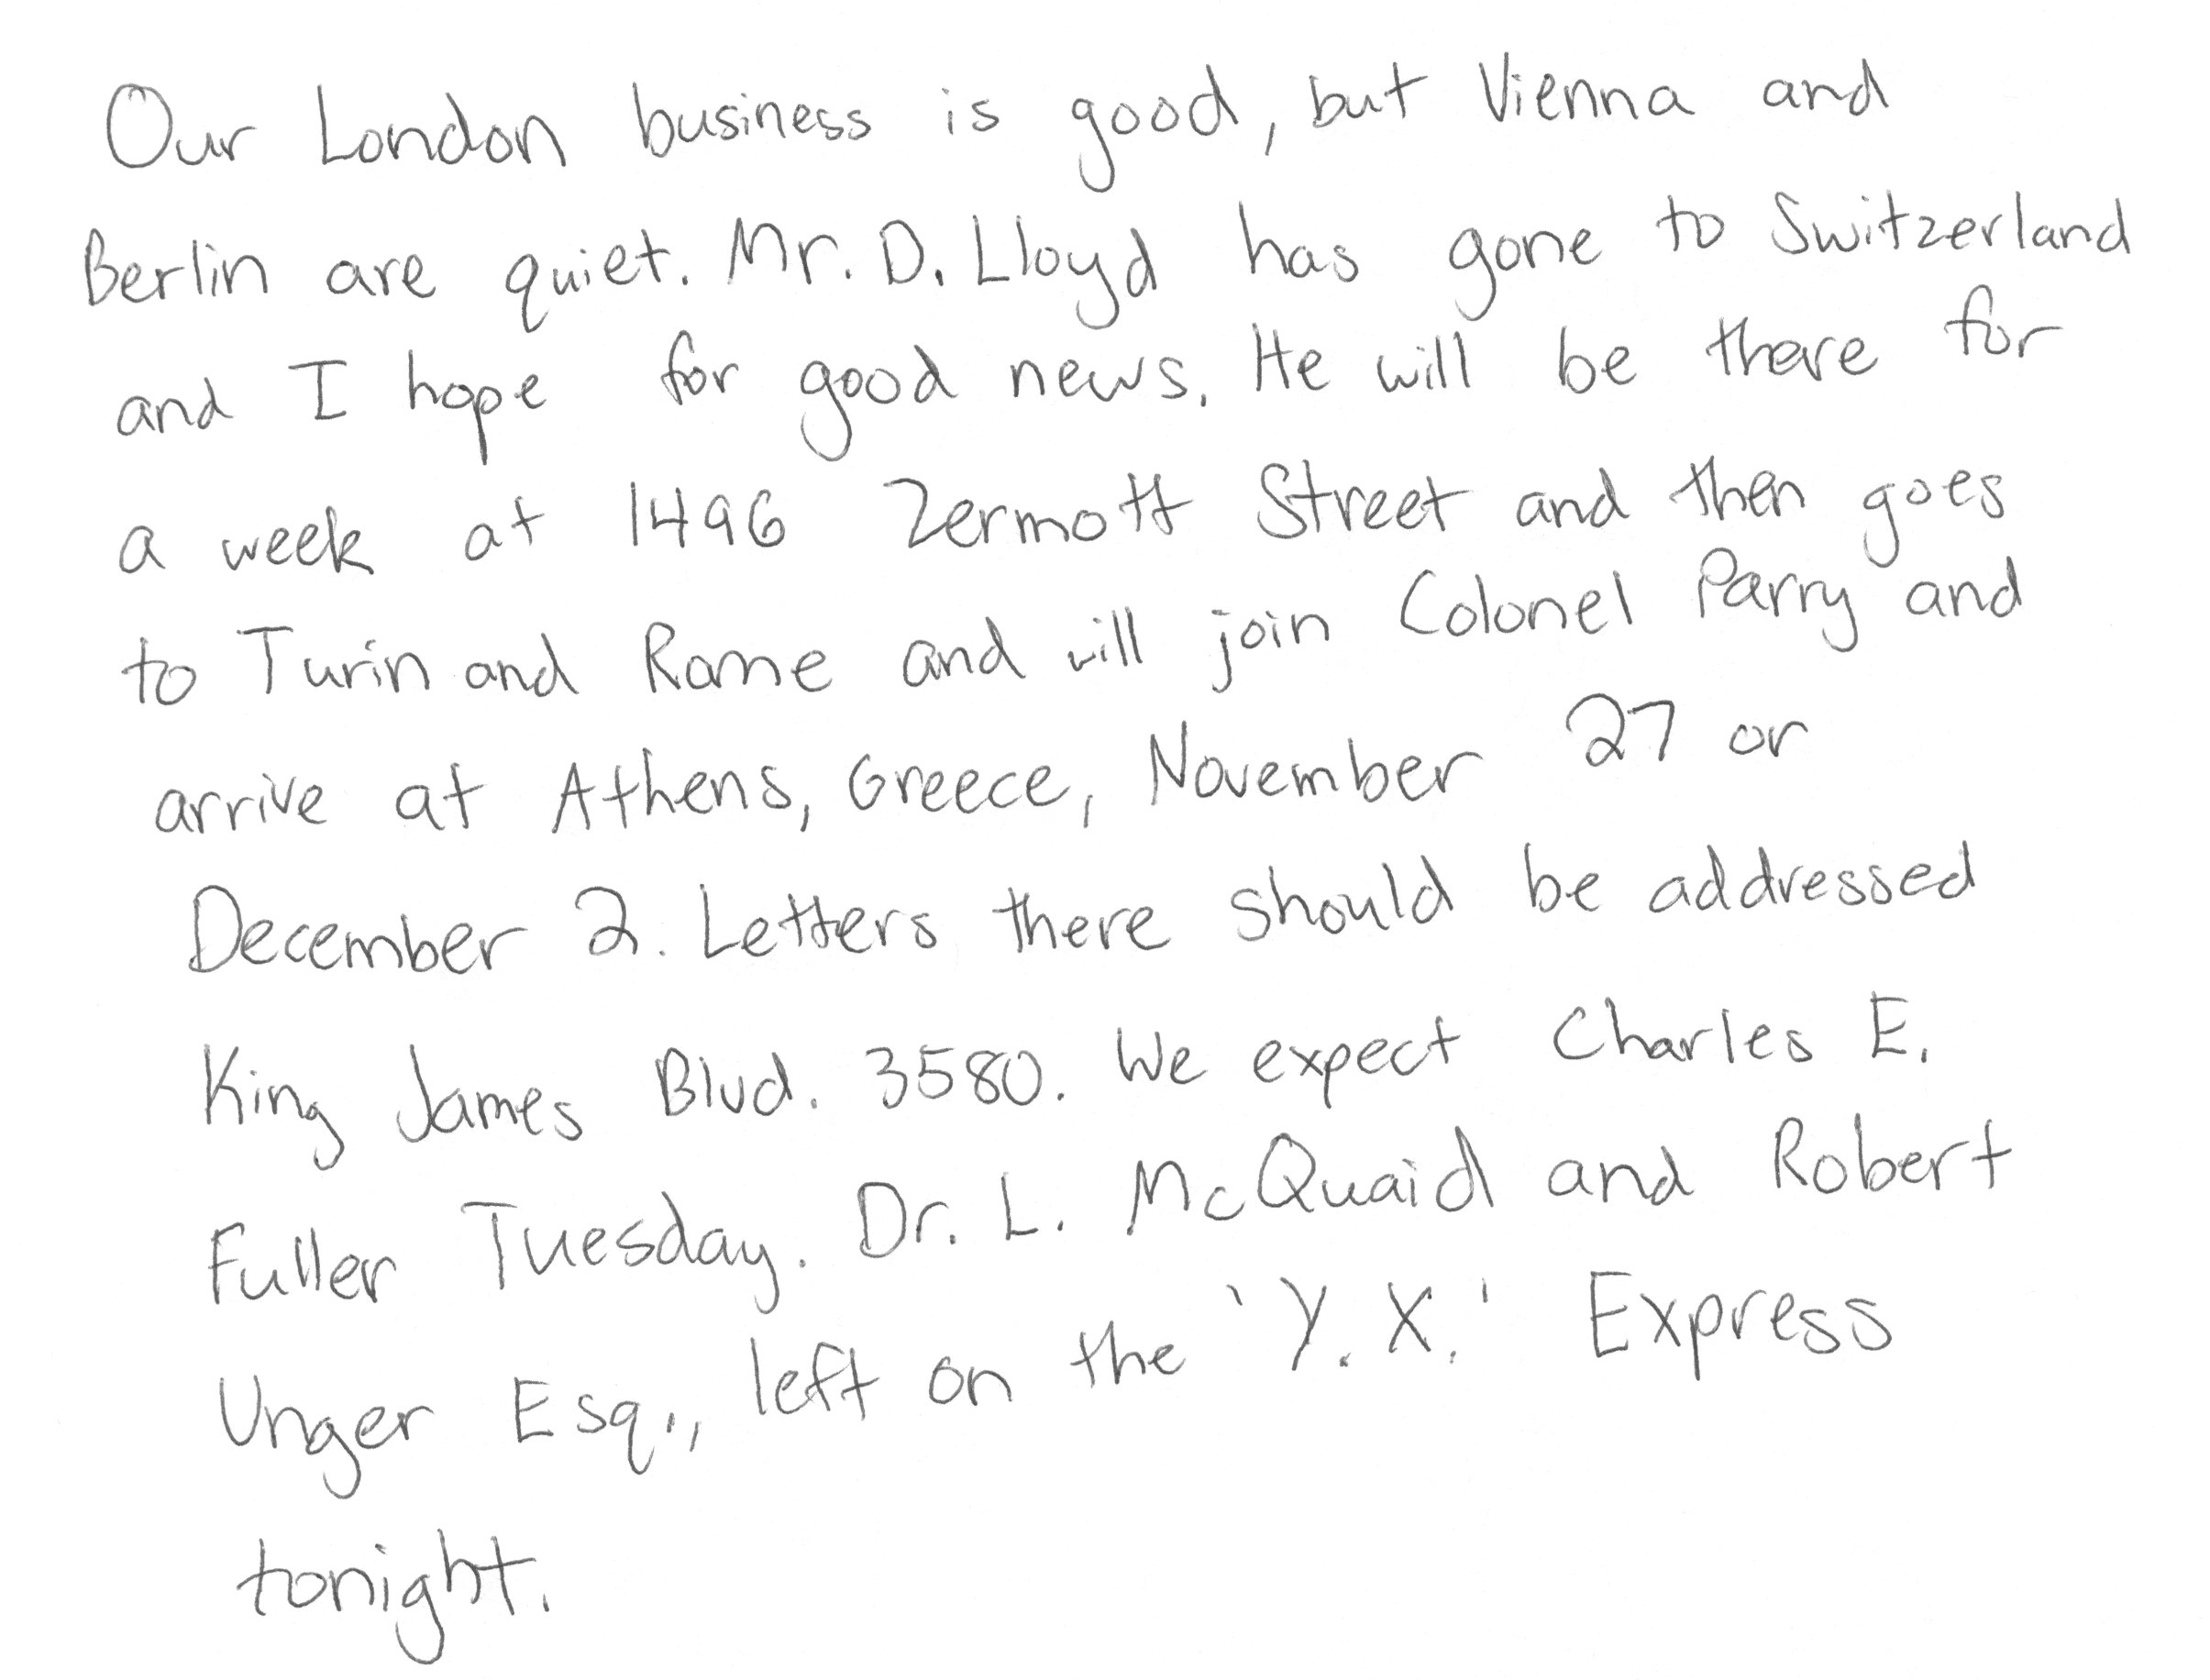 Our London business is good, but Vienna and
Berlin are quiet. Mr. D. Lloyd has gone to Switzerland
and I hope for good news. He will be there for
a week at 1496 Zermott Street and then goes
to Turin and Rome and will join Colonel Parry and
arrive at Athens, Greece, November 27 or
December 2. Letters there should be addressed
King James Blvd. 3580. We expect Charles E.
Fuller Tuesday. Dr. L. McQuaid and Robert
Unger Esq., left on the 'Y. X.' Express
tonight.